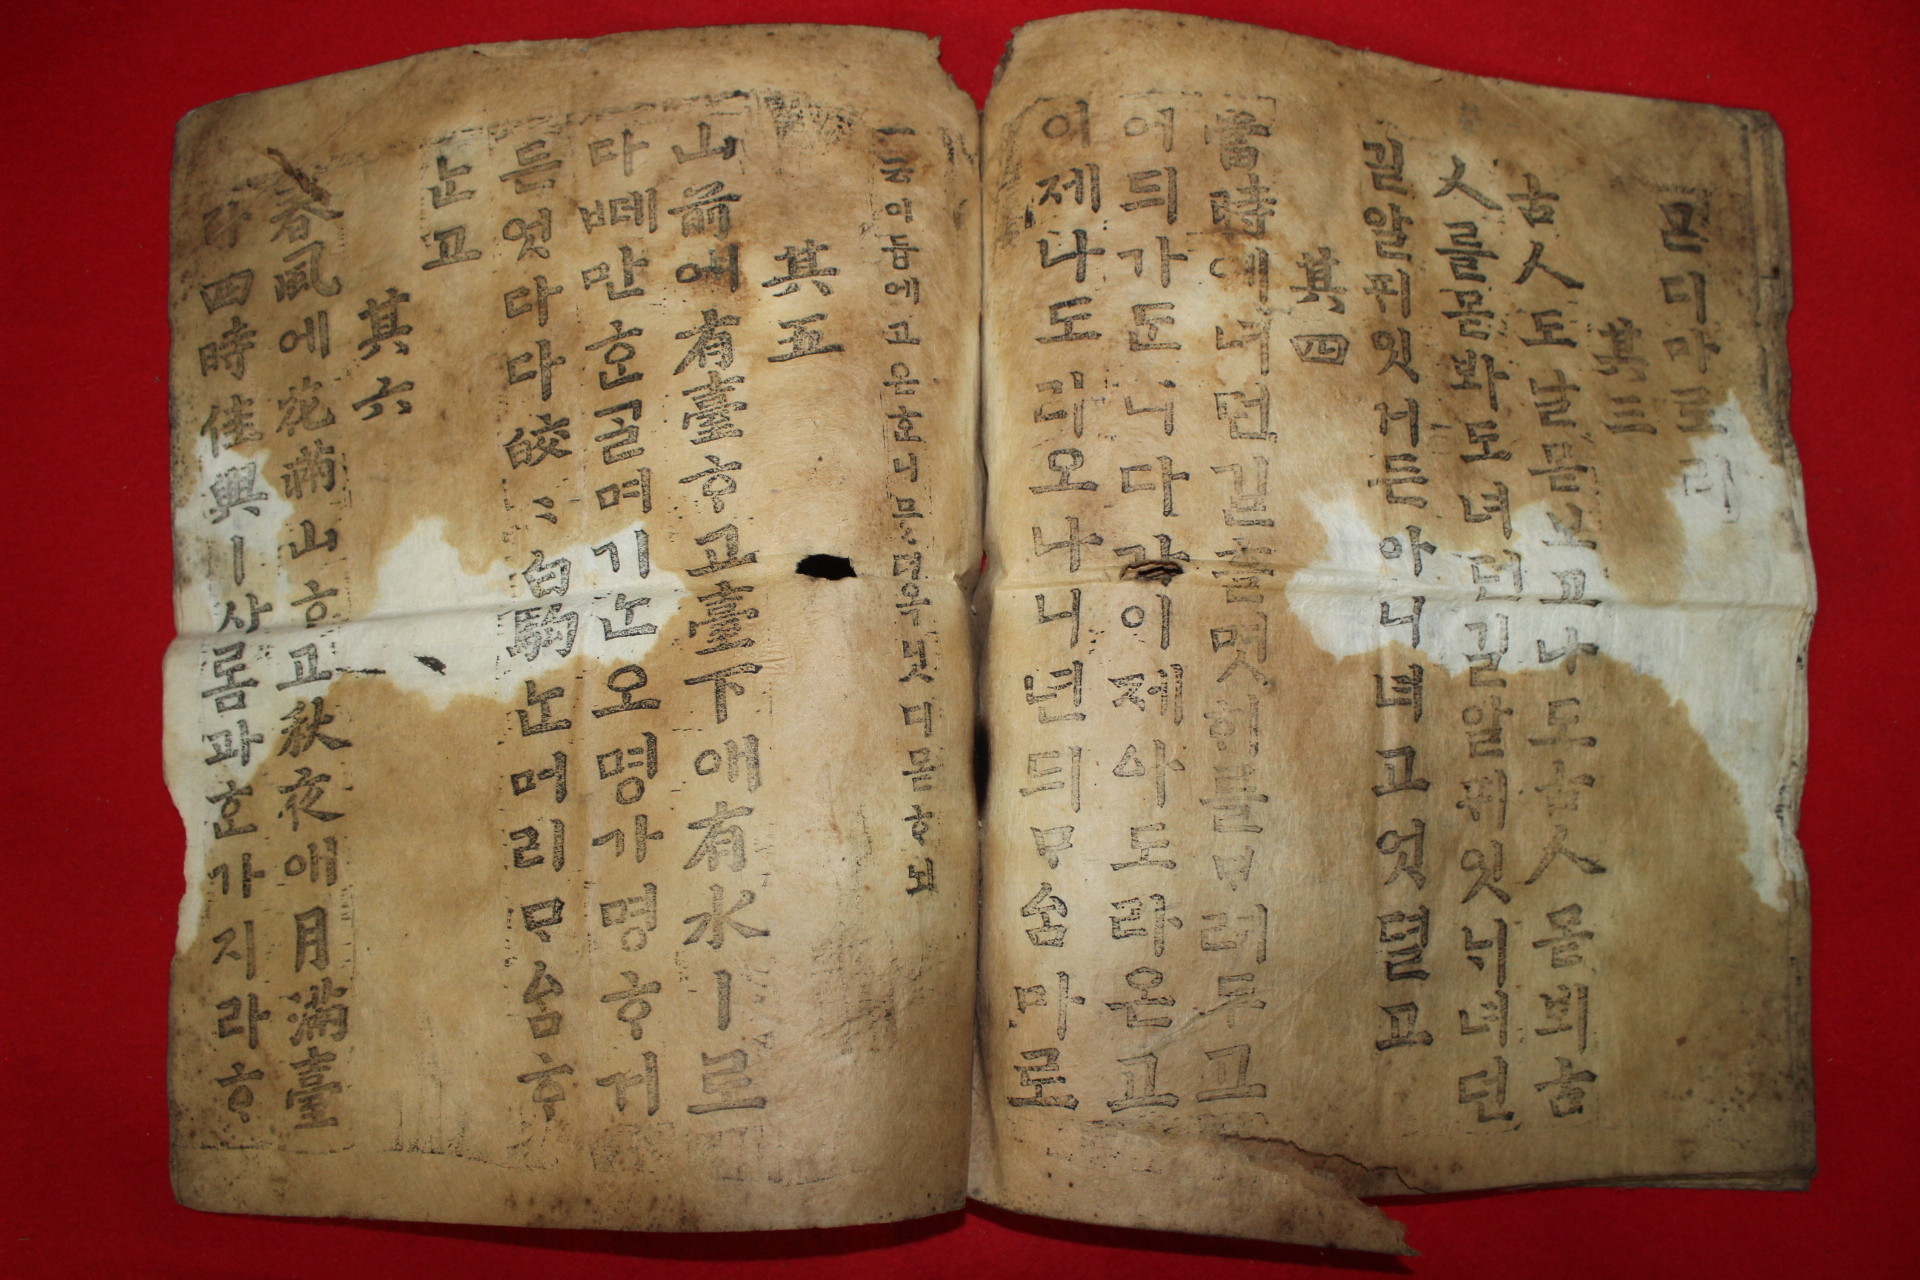 몯디마로리
其三
古人도날몯보고나도古人몯뵈古
人를몯봐도녀던길알ᄑᆡ잇ᄂᆡ녀던
길알ᄑᆡ잇거든아니녀고엇뎔고
其四
當時예녀던길흘몃ᄒᆡ를ᄇᆞ려두고
어듸가ᄃᆞᆫ니다가이제ᅀᅡ도라온고
이제나도라오나니년듸ᄆᆞᅀᆞᆷ마로
고온ᄒᆞᆫ니믈더옥닛디몯ᄒᆞ
其五
山前에有臺ᄒᆞ고臺下애有水ㅣ로
다ᄠᅦ만ᄒᆞᆫᄀᆞᆯ며기ᄂᆞᆫ오명가명ᄒᆞ거
든엇다다皎〻白駒ᄂᆞᆫ머리ᄆᆞᅀᆞᆷᄒᆞ
ᄂᆞᆫ고
其六
春風에花滿山ᄒᆞ고秋夜애月滿臺
라四時佳興ㅣ사ᄅᆞᆷ과ᄒᆞᆫ가지라ᄒᆞ